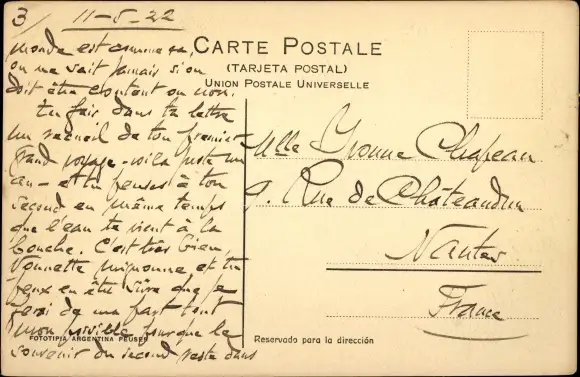 3/ 11-5-22
monde est comme ça,
on ne sait jamais si on
doit être content ou non.
Tu fais dans ta lettre
un recueil de ton premier
grand voyage - voilà juste un
an - et tu penses à ton
second en même temps
que l'eau te vient à la
bouche. C'est très bien,
Vonnette mignonne, et tu
peux en être sûre que je
ferai de ma part tout
mon possible pourque le
souvenir du second reste dans
CARTE POSTALE
(TARJETA POSTAL)
UNION POSTALE UNIVERSELLE
Mlle Yvonne Chapeau
9. Rue de Châteaudun
Nantes
France
FOTOTIPIA ARGENTINA PEUSER
Reservado para la dirección